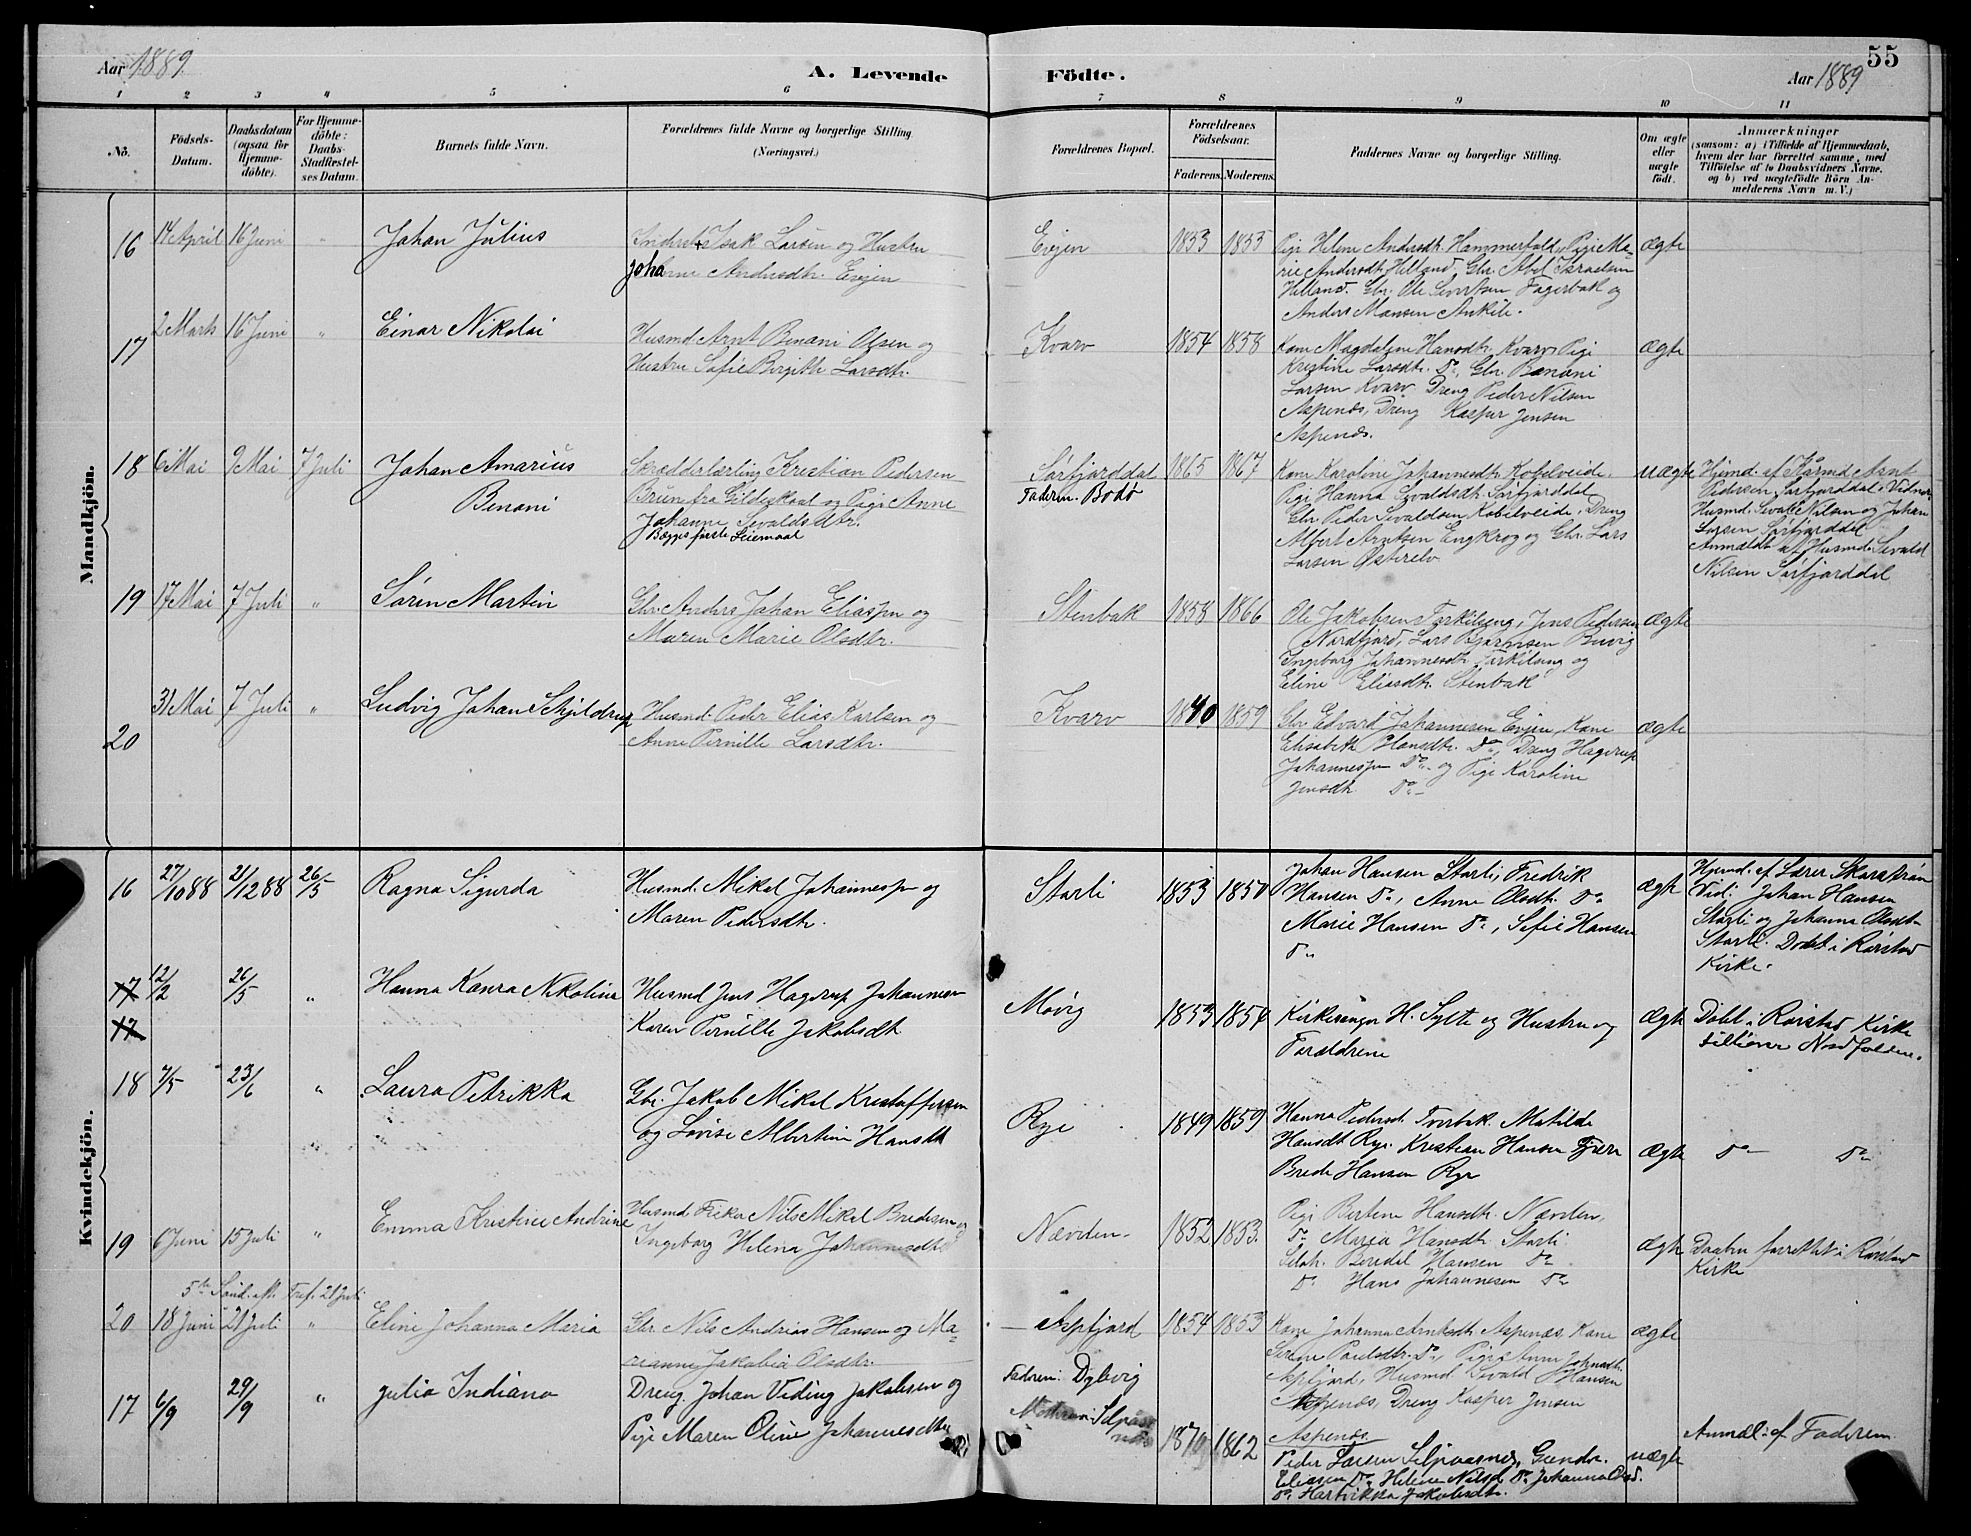 Aar 1889
A. Levende Födte.
55
Aar 1889
1 2 3 4 5 6 7 8 9 10 11
No.
Födsels-Datum.
Daabsdatum (ogsaa for Hjemme-döbte).
For Hjemme-döbte: Daabs-Stadfæstel-ses Datum.
Barnets fulde Navn.
Forældrenes fulde Navne og borgerlige Stilling.
(Næringsvei.)
Forældrenes Bopæl.
Forældrenes Födselsaar.
Faderens. Moderens.
Faddernes Navne og borgerlige Stilling.
Om ægte eller uægte födt.
Anmærkninger
(saasom: a) i Tilfælde af Hjemmedaab,
hvem der har forrettet samme, med
Tilföielse af to Daabsvidners Navne.
og b) ved uægtefödte Börn An-
melderens Navn m. V.)
Mandkjön.
16 14 April 16 Juni " Johan Julius
Inderst Isak Larsen og Hustru
Johanne Andersdtr. Evjen
Evjen 1853 1855
Pige Helene Andersdtr. Hammerfald, Pige Ma-
rie Andersdtr. Helland, Gbr. Abel Israelsen
Helland. Gbr. Ole Sivertsen Fagerbak og
Anders Monsen Ankile.
ægte
17 2 Marts 16 Juni " Einar Nikolai
Husmd. Arnt Benoni Olsen og
Hustru Sofie Birgithe Larsdtr.
Kvarv 1854 1858
Kone Magdalene Hansdtr. Kvarv, Pige
Kristine Larsdtr. Do, Gbr. Benoni
Larsen Kvarv. Dreng Peder Nilsen
Aspenæs, Dreng Kasper Jensen
Aspenæs.
ægte
18 6 Mai 9 Mai 7 Juli Johan Amarius
Benoni
Skrædderlærling Kristian Pedersen
Brun fra Gildeskaal og Pige Anne
Johanne Sevaldsdtr.
Begges første Leiemaal
Sørfjorddal
Faderen: Bodø
1865 1867
Kone Karoline Johannesdtr. Kobelveide.
Pige Hanna Sevaldsdtr. Sørfjorddal
Gbr. Peder Sevaldsen Kobelveide, Dreng
Albert Arntsen Engkrog og Gbr. Lars
Larsen Østerelv
uægte
Hjmd. af Kårmd. Arnt
Pedersen Sørfjorddal. Vidner
Husmd. Sevald Nilsen og Johan
Larsen Sørfjorddal
Anmeldt af Husmd. Sevald
Nilsen Sørfjorddal
19 17 Mai 7 Juli " Søren Martin
Gbr. Anders Johan Eliassen og
Maren Marie Olsdtr.
Stenbak 1858 1866
Ole Jakobsen Torkilseng, Jens Pedersen
Nordfjord, Lars Bjørnsen Buvig
Ingeborg Johannesdtr. Torkilseng og
Eline Eliasdtr. Stenbak
ægte
20 31 Mai 7 Juli " Ludvig Johan Schjeldrup
Husmd. Peder Elias Karlsen og
Anne Pernille Larsdtr.
Kvarv 1840 1859
Gbr. Edvard Johannesen Evjen, Kone
Elisabeth Hansdtr. Do, Dreng Hagerup
Johannesen Do og Pige Karoline
Jensdtr. Do
ægte
Kvindekjön.
16 27/10 88 21/12 88 26/5 Ragna Sigurda
Husmd. Mikal Johannesen og
Maren Pedersdtr.
Storli 1853 1850
Johan Hansen Storli, Fredrik
Hansen Do, Anne Olsdtr. Do
Marie Hansen Do, Sofie Hansen
Do
ægte
Hjemd. af Lærer
Vid: Johan Hansen
Storli og Johanna Olsdtr
Storli. Døbt i Rørstad
Kirke.
17 17 12/2 26/5 " Hanna Kanra Nikolina
Husmd Jens Hagerup Johannesen
Karen Pernille Jakobsdtr
Møvig 1853 1854
Kirkesanger H. Sylte og Hustru og
Forældrene
ægte
Døbt i Rørstad Kirke
tilhører Nordfolden.
18 7/5 23/6 " Laura Petrikka
Gbr. Jakob Mikal Kristoffersen
og Lovise Albertine Hansdtr
Rye 1849 1859
Hanna Pedersd. Tverbak. Matilde
Hansdtr Rye. Kristian Hansen
Brede Hansen Rye
ægte
Do Do
19 6 Juni 15 Juli " Emma Kristine Andrine
Husmd. Fisker Nils Mikal Bredesen og
Ingeborg Helena Johannesdtr
Nævden. 1852 1853.
Pige Bertine Hansdtr. Nævden,
Do Maria Hansdtr. Storli
Selvst. Beredel Hansen Do
Do Hans Johannesen Do
ægte
Daaben forrettet i Rørstad
Kirke
5te Sønd. eft. Tref. 21 Juli
20 18 Juni 21 Juli " Eline Johanna Maria
Gbr. Nils Andrias Hansen og Ma-
rianne Jakobia Olsdtr.
Aspfjord 1854 1853
Kone Johanna Arntsdtr. Aspenæs, Kone
Serine Paulsdtr. Do, Pige Anne Johnsdtr.
Aspfjord, Husmd. Sevald Hansen
Aspenæs, Dreng Kasper Jensen
Aspenæs
ægte
17 6/9 29/9 " Julia Indiana
Dreng. Johan Viding Jakobsen og
Pige Maren Oline Johannesdtr
Faderen: Dybvig
Moderen: Silpaas
næs
1870 1862
Peder Larsen Silpaasnes, Gunder.
Eliasen Do, Helene Nilsd. Do Johanna Olsd.
Do Hartvikka Jakobsdtr.
uægte
Anmel: af Faderen